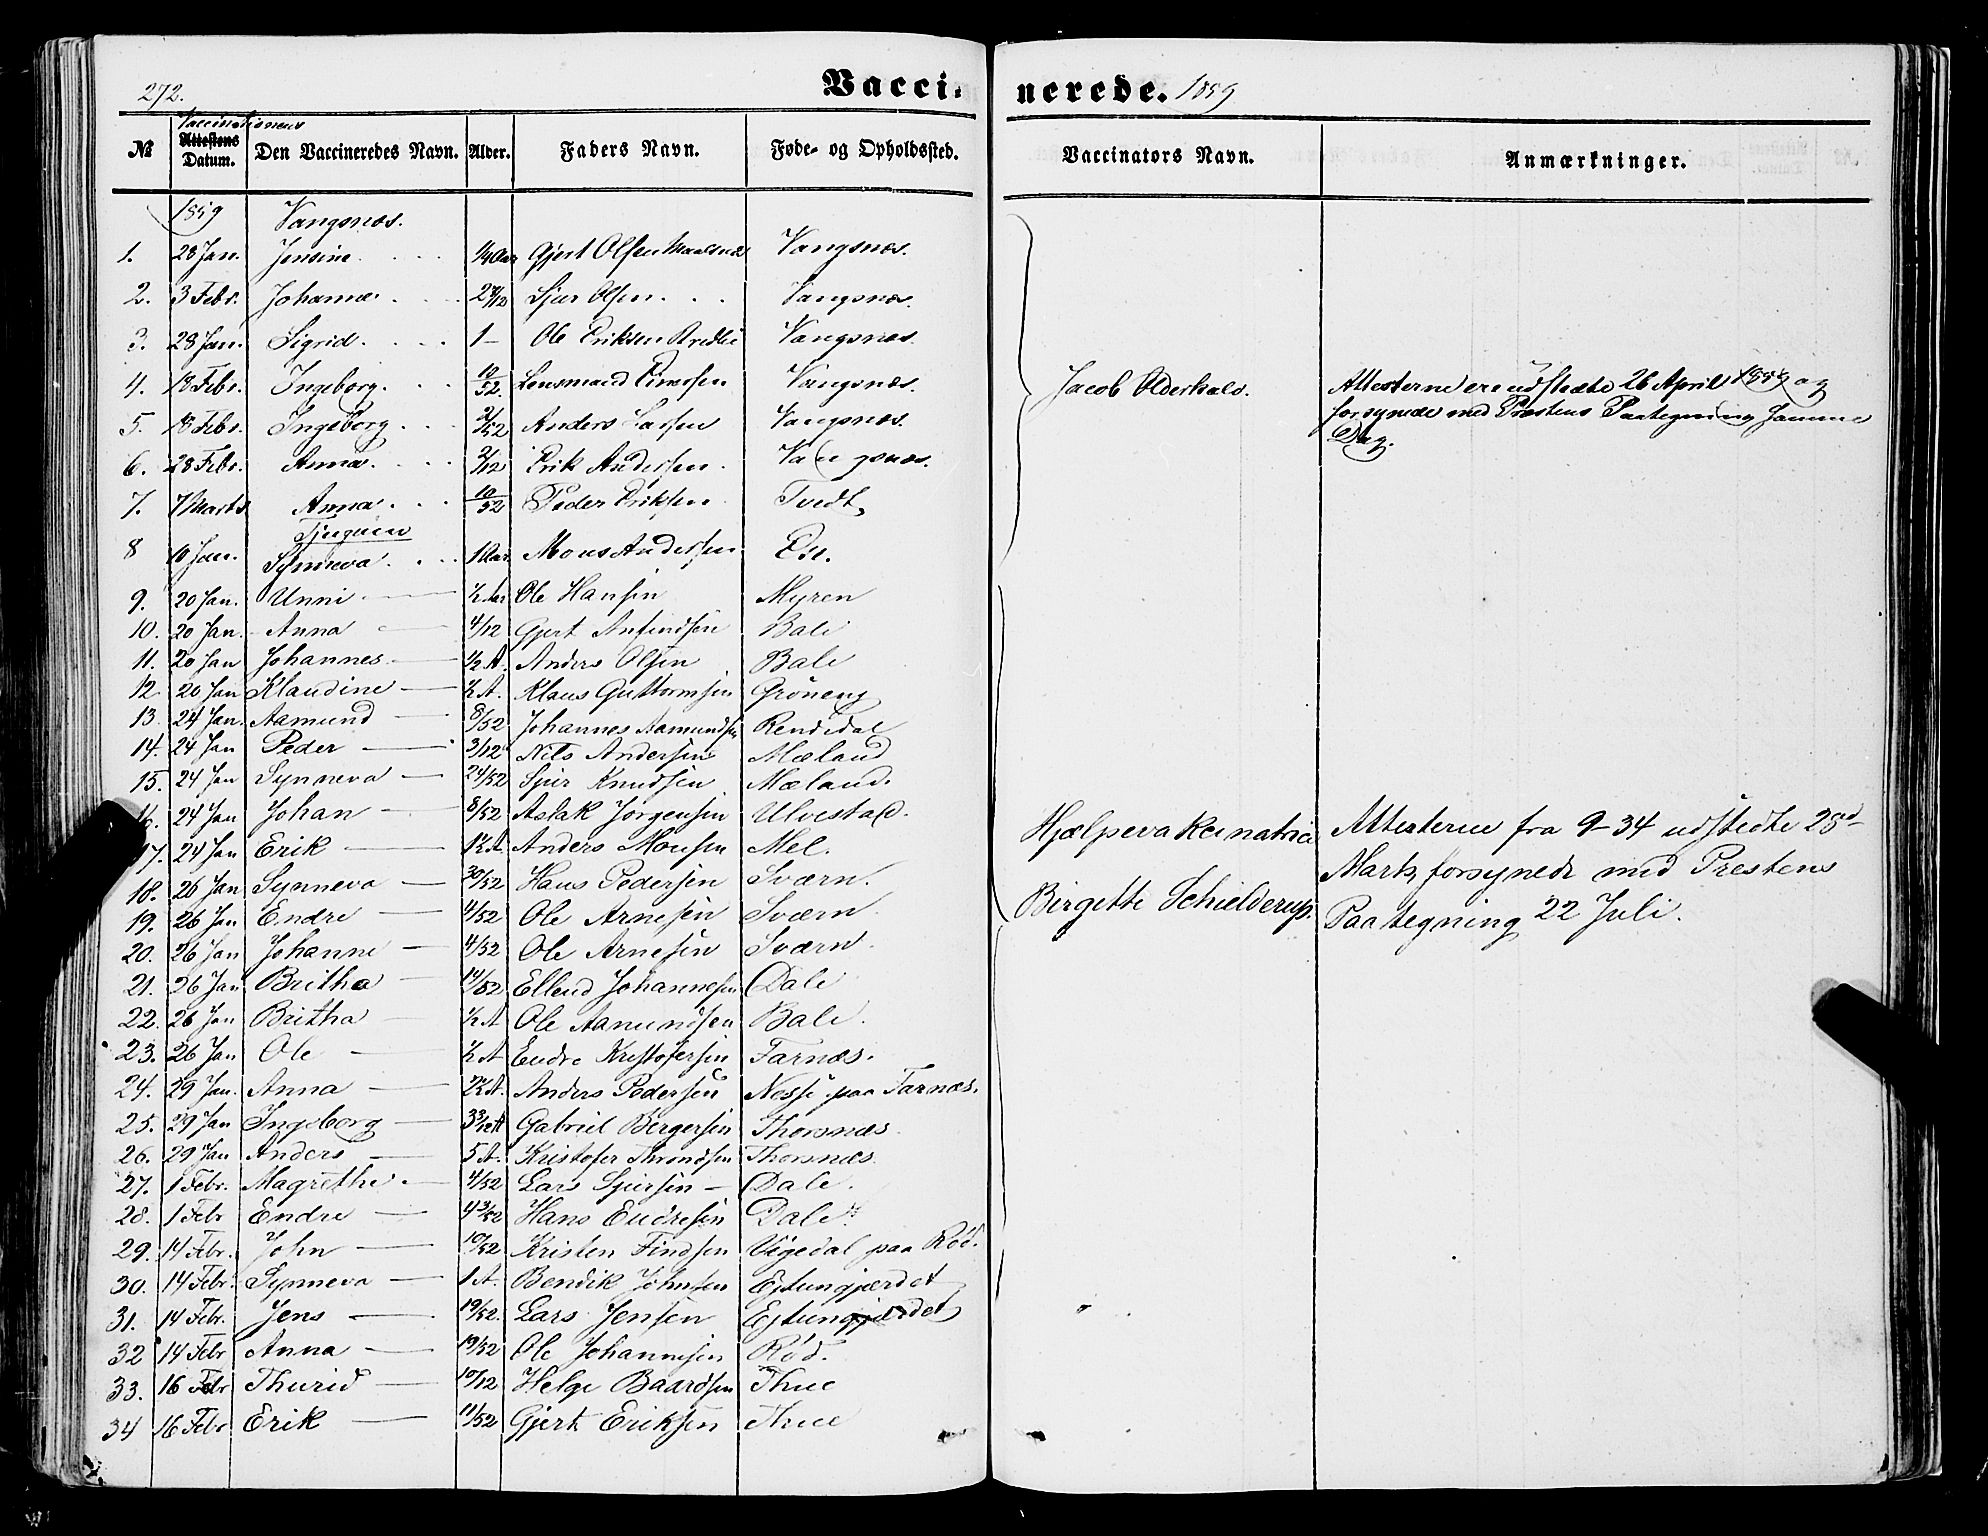 272.
Vaccinerede. 1859
Vaccinationens
№ Attestens Datum. Den Vaccineredes Navn. Alder. Faders Navn. Føde- og Opholdssted. Vaccinators Navn. Anmærkninger.
1859 Vangsnæs.
1. 28 Jan. Jensine 1/4 Aar Gjert Olsen Vangsnæs.
2. 3 Febr. Johanne Sjur Olsen Vangsnæs.
3. 28 Jan. Sigrid 1 Ole Eriksen Vangsnæs.
4. 18 Febr. Ingeborg 10/52 Lensmand Vangsnæs. Jacob Olderhals. Attesterne ere udstædte 26 April 1859 og
5. 18 Febr. Ingeborg 3/52 Anders Lassen Vangsnæs. forsynede med Præstens Paategning samme
6. 28 Febr. Anna 2/12 Erik Andersen Vangsnæs. Dag.
7. 7 Marts Anna 10/52 Peder Eriksen Tvedt
Tjugum
8 10 Jan. Synneva 1 Aar Mons Andersen Ese.
9. 20 Jan. Unni 1/2 Aar Ole Hansen Myren
10. 20 Jan. Anna 4/12 Gjert Anfindsen Bale
11. 20 Jan Johannes 1/2 A. Anders Olsen Bale
12 20 Jan Klaudine 1/2 A. Klaus Guttormsen Grøneng
13. 24 Jan. Aamund 8/52 Johannes Aamundsen Rendedal
14. 24 Jan Peder 3/12 Nils Andersen Mæland
15. 24 Jan Synneva 24/52 Sjur Knudsen Mæland.
16. 24 Jan Johan 8/52 Aslak Jørgensen Ulvestad. Hjælpevakcinatrice Attesterne fra 9-34 udstedte 25d
17. 24 Jan Erik 1 1/2 A. Anders Monsen Mel. Marts, forsynede med Prestens
18. 26 Jan Synneva 30/52 Hans Pedersen Sværn. Birgette Schielderup. Paategning 22 Juli.
19. 26 Jan Endre 4/52 Ole Arnesen Sværn.
20. 26 Jan Johanne 4/52 Ole Arnesen Sværn.
21. 26 Jan Britha 14/52 Ellend Johannesen Dale
22. 26 Jan Britha 1/2 A Ole Aamundsen Bale.
23. 26 Jan Ole 1/2 A Endre Kristofersen Farnæs.
24. 29 Jan. Anna 2 1/2 A. Anders Pedersen Nesse paa Farnæs.
25. 29 Jan Ingeborg 3 3/12 A Gabriel Bergersen Thorsnæs
26. 29 Jan Anders 5 A. Kristofer Throndsen Thorsnæs.
27. 1 Febr. Magrethe 4/52 Lars Sjursen Dale.
28. 1 Febr Endre 43/52 Hans Endresen Dale.
29. 14 Febr. John 10/52 Kristen Findsen Vigedal paa Rød.
30. 14 Febr. Synneva 1 A. Bendik Johnsen Ejtungjærdet
31. 14 Febr. Jens 19/52. Lars Jensen Ejtungjærdet
32 14 Febr Anna 19/52 Ole Johannesen Rød.
33. 16 Febr Thurid 10/12 Helge Baardsen Thue
34 16 Febr Erik 11/52 Gjert Eriksen Thue